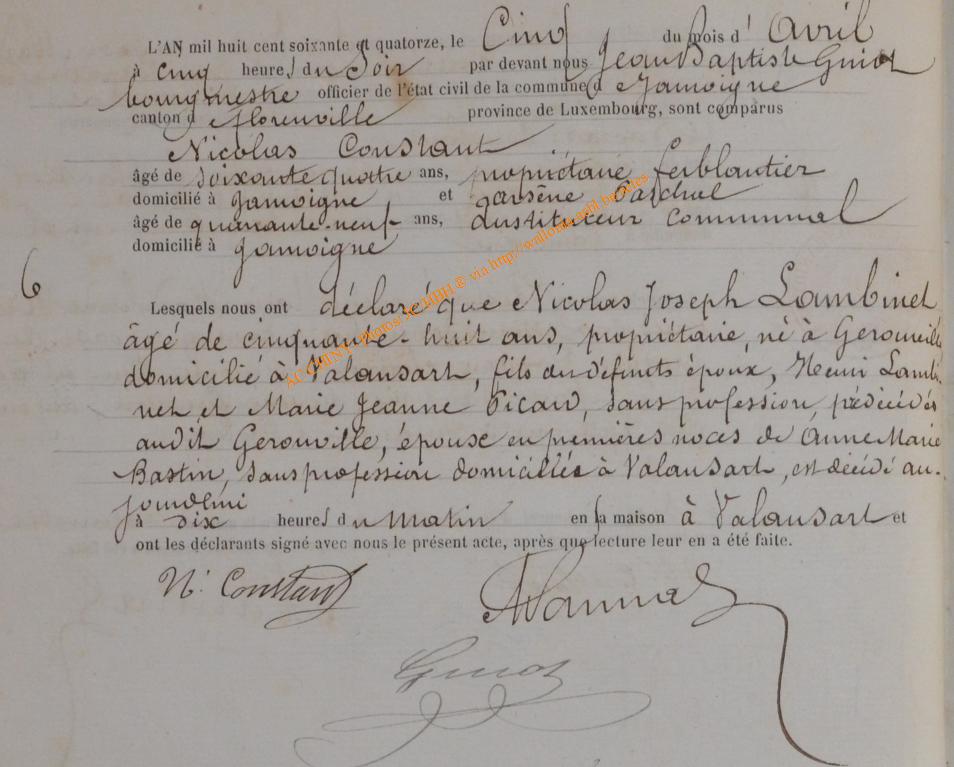 L'AN mil huit cent soixante et quatorze, le Cinq du mois d' Avril
à cinq heures du Soir par devant nous Jean Baptiste Guiot
bourgmestre officier de l'état civil de la commune d e Jamoigne
canton d e Florenville province de Luxembourg, sont comparus
Nicolas Constant
âgé de soixante quatre ans, propriétaire ferblantier
domicilié à Jamoigne et arsène
âgé de quarante-neuf ans, instituteur communal
domicilié à Jamoigne
6
Lesquels nous ont déclaré que Nicolas Joseph Lambinet,
âgé de cinquante-huit ans, propriétaire, né à Gerouville
domicilié à Valansart, fils des défunts époux, Henri Lambi-
net et Marie Jeanne Picard, sans profession, prédécédés
audit Gerouville, époux en premières noces de Anne Marie
Bastin, sans profession domiciliée à Valansart, est décédé au-
jourd'hui
à dix heures du Matin en sa maison à Valansart et
ont les déclarants signé avec nous le présent acte, après que lecture leur en a été faite.
N. Constant
Guiot